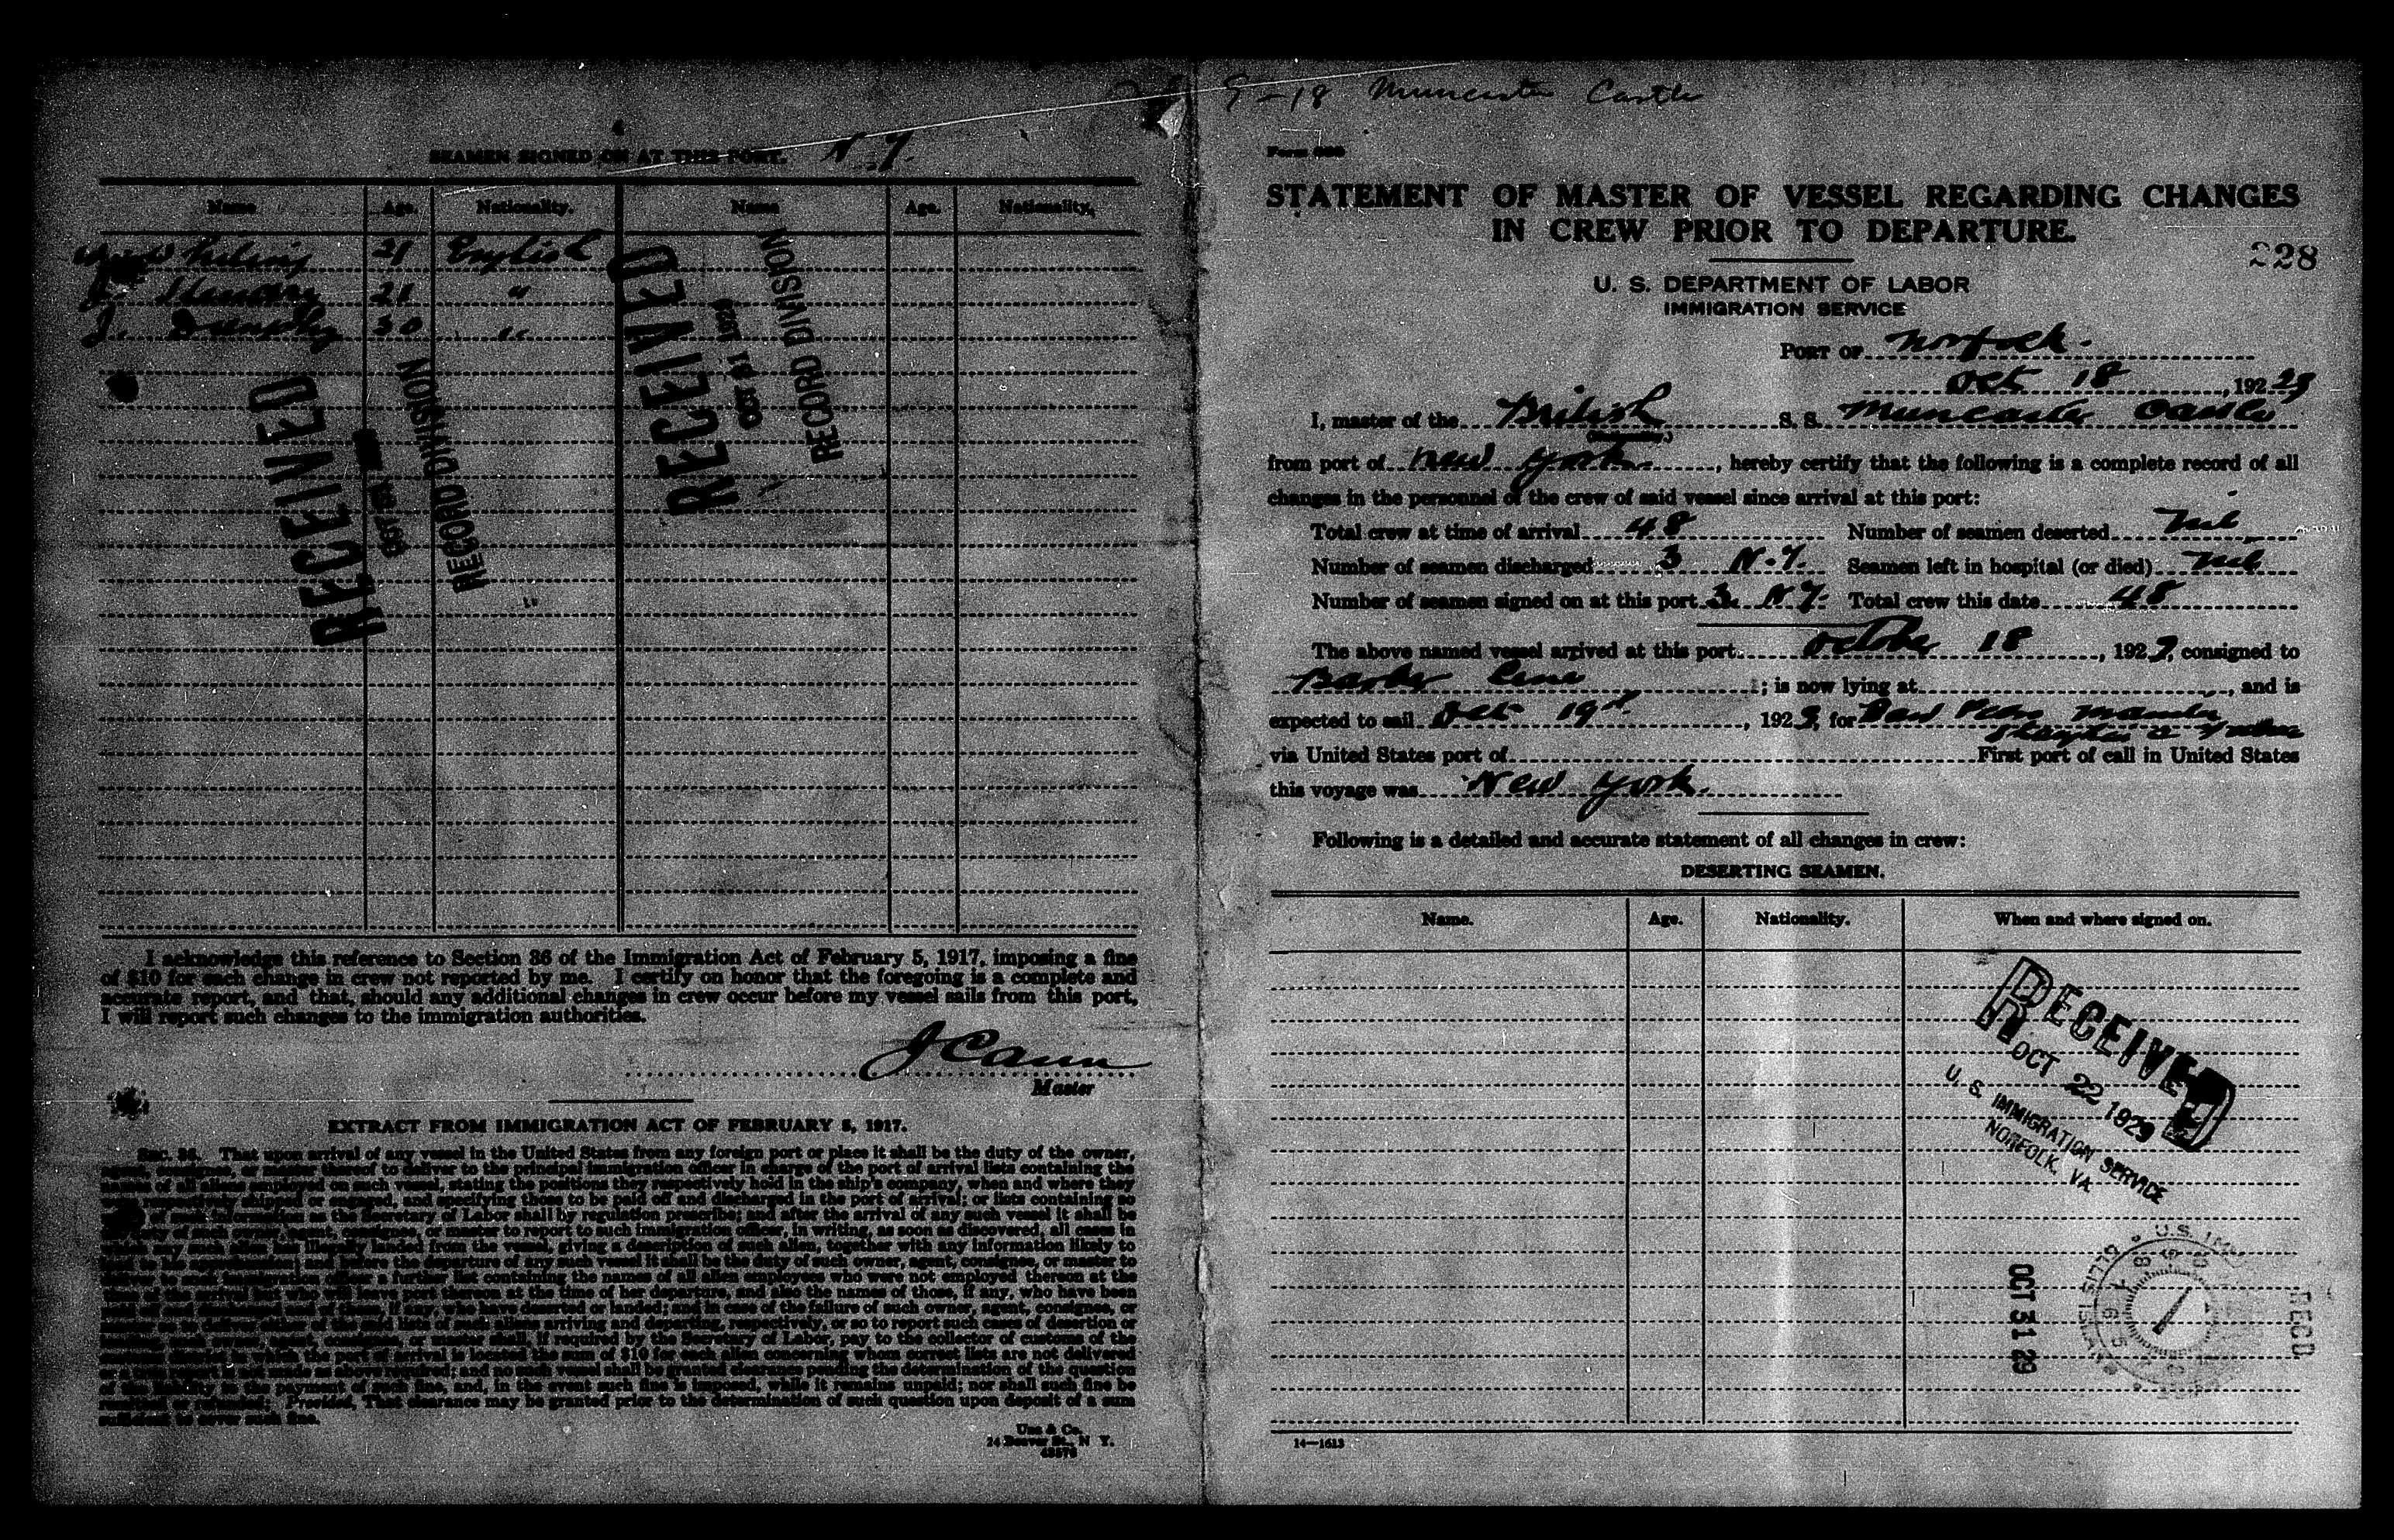 4
SEAMEN SIGNED ON AT THIS PORT. N.Y.
Name Age. Nationality. Name Age. Nationality.
21 English
21 "
J. Dunphy 30 "
RECEIVED
RECORD DIVISION
RECEIVED
OCT 31 1929
RECORD DIVISION
I acknowledge this reference to Section 36 of the Immigration Act of February 5, 1917, imposing a fine
of $10 for each change in crew not reported by me. I certify on honor that the foregoing is a complete and
accurate report, and that, should any additional changes in crew occur before my vessel sails from this port,
I will report such changes to the immigration authorities.
J Cann
Master
EXTRACT FROM IMMIGRATION ACT OF FEBRUARY 5, 1917.
SEC. 36. That upon arrival of any vessel in the United States from any foreign port or place it shall be the duty of the owner,
agent, consignee, or master thereof to deliver to the principal immigration officer in charge of the port of arrival lists containing the
names of all aliens employed on such vessel, stating the positions they respectively hold in the ship's company, when and where they
were respectively shipped or engaged, and specifying those to be paid off and discharged in the port of arrival; or lists containing so
much of such information as the Secretary of Labor shall by regulation prescribe; and after the arrival of any such vessel it shall be
the duty of such owner, agent, consignee, or master to report to such immigration officer, in writing, as soon as discovered, all cases in
which any such alien has illegally landed from the vessel, giving a description of such alien, together with any information likely to
lead to his apprehension; and before the departure of any such vessel it shall be the duty of such owner, agent, consignee, or master to
deliver to such immigration officer a further list containing the names of all alien employees who were not employed thereon at the
time of the arrival but who will leave port thereon at the time of her departure, and also the names of those, if any, who have been
paid off and discharged, and of those, if any, who have deserted or landed; and in case of the failure of such owner, agent, consignee, or
master so to deliver either of the said lists of such aliens arriving and departing, respectively, or so to report such cases of desertion or
landing, such owner, agent, consignee, or master shall, if required by the Secretary of Labor, pay to the collector of customs of the
customs district in which the port of arrival is located the sum of $10 for each alien concerning whom correct lists are not delivered
or a true report is not made as above required; and no such vessel shall be granted clearance pending the determination of the question
of the liability to the payment of such fine, and, in the event such fine is imposed, while it remains unpaid; nor shall such fine be
remitted or refunded: Provided, That clearance may be granted prior to the determination of such question upon deposit of a sum
sufficient to cover such fine.
Unz & Co.
24 Beaver St., N Y.
9-18 Muncaster Castle
Form
STATEMENT OF MASTER OF VESSEL REGARDING CHANGES
IN CREW PRIOR TO DEPARTURE.
228
U. S. DEPARTMENT OF LABOR
IMMIGRATION SERVICE
PORT OF Norfolk.
Oct 18, 192 29
I, master of the British S. S. Muncaster Castle
(Nationality.)
from port of New York, hereby certify that the following is a complete record of all
changes in the personnel of the crew of said vessel since arrival at this port:
Total crew at time of arrival 48 Number of seamen deserted Nil
Number of seamen discharged 3 N.Y. Seamen left in hospital (or died) Nil
Number of seamen signed on at this port 3 N.Y. Total crew this date 48
The above named vessel arrived at this port October 18, 192 9, consigned to
Barber Line; is now lying at, and is
expected to sail Oct 19th, 192 9, for Manila
via United States port of First port of call in United States
this voyage was New York.
Following is a detailed and accurate statement of all changes in crew:
DESERTING SEAMEN.
Name. Age. Nationality. When and where signed on.
RECEIVED
OCT 22 1929
U. S. IMMIGRATION SERVICE
NORFOLK, VA.
OCT 31 29
REC'D
14—1613